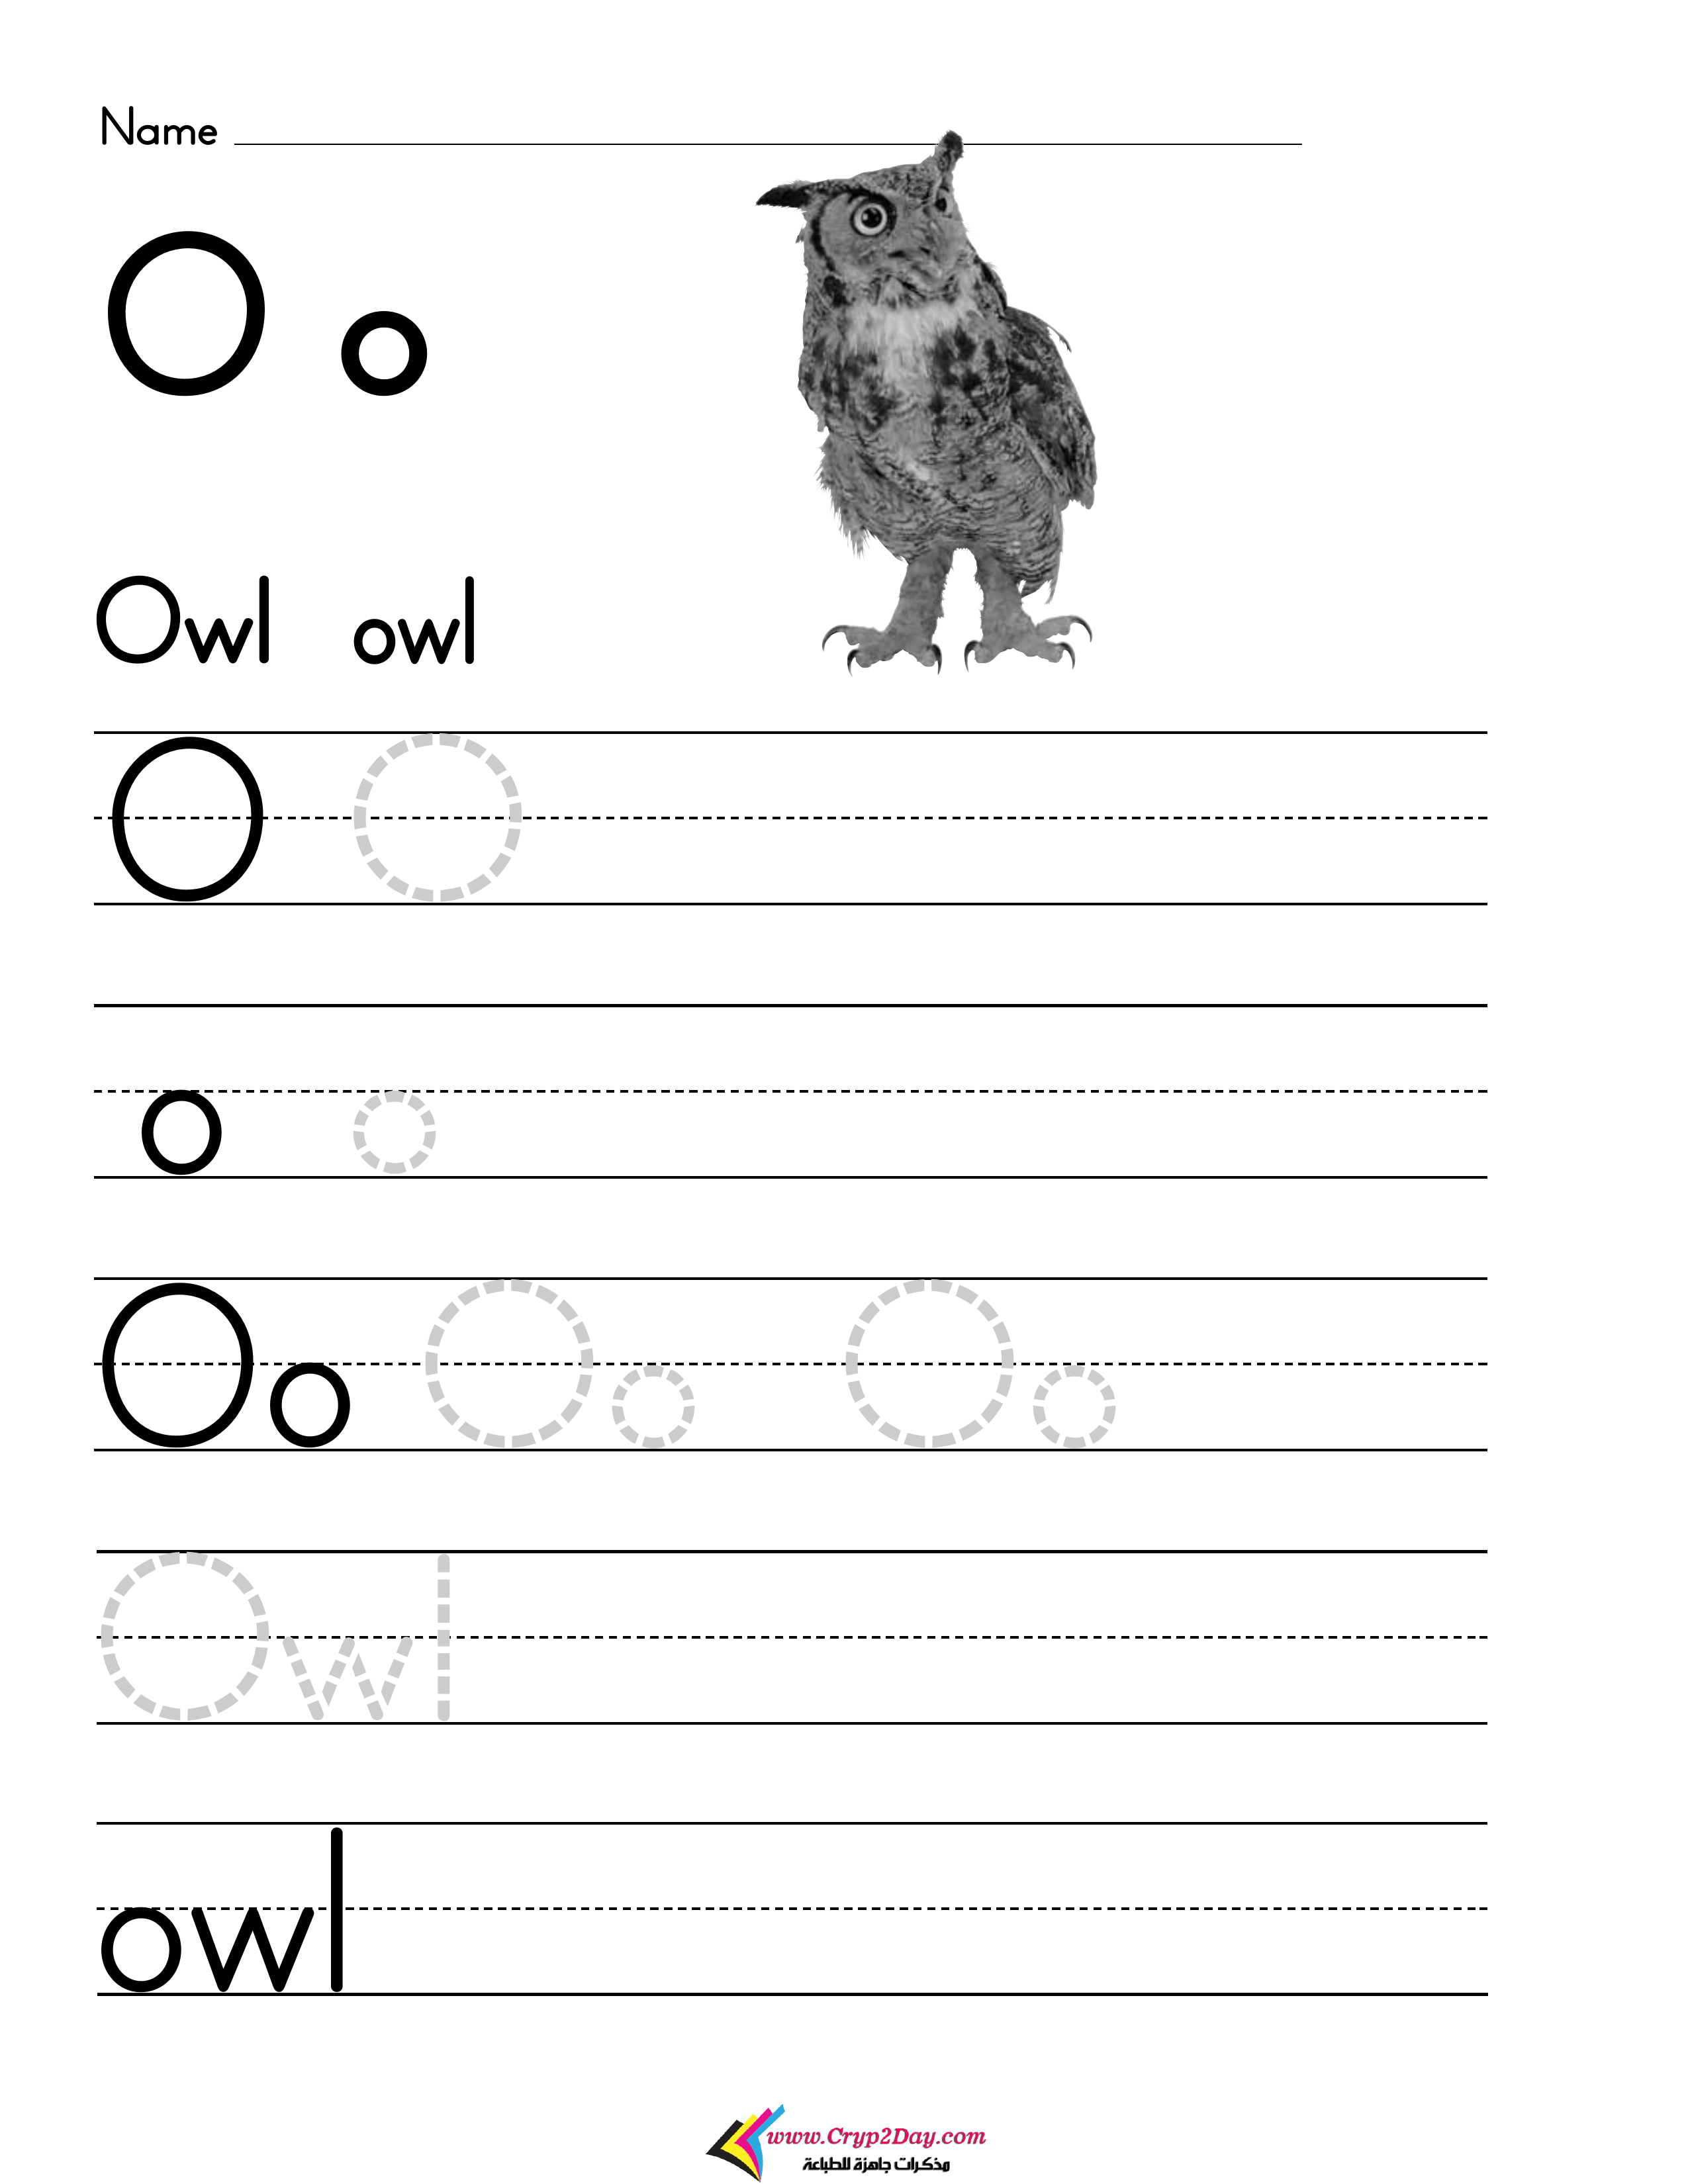 Name
O o
Owl owl
O O
o o
Oo Oo Oo
Owl
owl
www.Cryp2Day.com
مذكرات جاهزة للطباعة